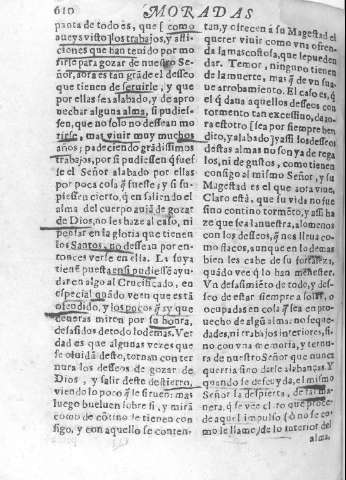 610
MORADAS
panta de todo es, que (como
aueys visto) los trabajos, y afli-
ciones que han tenido por mo
rirse para gozar de nuestro Se-
ñor, aora es tan gráde el desseo
que tienen de seruirle, y que
por ellas sea alabado, y de apro
uechar alguna alma, si pudies-
sen, que no solo no dessean mo
rirse, mas viuir muy muchos
años, padeciendo grádissimos
trabajos, por si pudiessen q̃ fues-
se el Señor alabado por ellas
por poca cosa q̃ fuesse; y si su-
piessen cierto, q̃ en saliendo el
alma del cuerpo auiá de gozar
de Dios, no les haze al caso, ni
pensar en la gloria que tienen
los Santos, no dessean por en-
tonces verse en ella. La suya
tiené puesta en si pudiessé ayu-
dar en algo al Crucificado, en
especial quádo veen que está
ofendido, y los pocos q̃ ay que
deueras miren por su honra,
desasidos de todo lo demas. Ver
dad es que algunas vezes que
se oluida desto, tornan con ter
nura los desseos de gozar de
Dios, y salir deste destierro,
viendo lo poco q̃ le siruen: mas
luego bueluen sobre si, y mirá
como de cótino le tienen con
sigo, y con aquello se conten-
tan, y ofrecen à su Magestad el
querer viuir como vna ofren-
da la mas costosa, que le pueden
dar. Temor, ninguno tienen
de la muerte, mas q̃ de vn sua-
ue arrobamiento. El caso es, q̃
el q̃ daua aquellos desseos con
tormento tan excessiuo, da ao-
ra estotro (sea por siempre ben
dito, y alabado) y assi los desseos
destas almas no son ya de rega
los, ni de gustos, como tienen
consigo al mismo Señor, y su
Magestad es el que aora viue,
Claro està, que su vida no fue
sino contino tormẽto, y assi ha
ze que sea la nuestra, alomenos
con los desseos, q̃ nos lleua co-
mo flacos, aunque en lo demas
bien les cabe de su fortaleza,
quádo vee q̃ lo han menester.
Vn desasimiẽto de todo, y des-
seo de estar siempre a solas, ò
ocupadas en cosa q̃ sea en pro-
uecho de algú alma: no seque-
dades, ni trabajos interiores, si-
no con vna memoria, y ternu-
ra de nuestro Señor que nunca
querria sino darle alabanças. Y
quando se descuyda, el mismo
Señor la despierta, de la ma-
nera, q̃ se vee claro que proce-
de aquel impulso (ò no se co-
mo le llame) de lo interior del
alma,